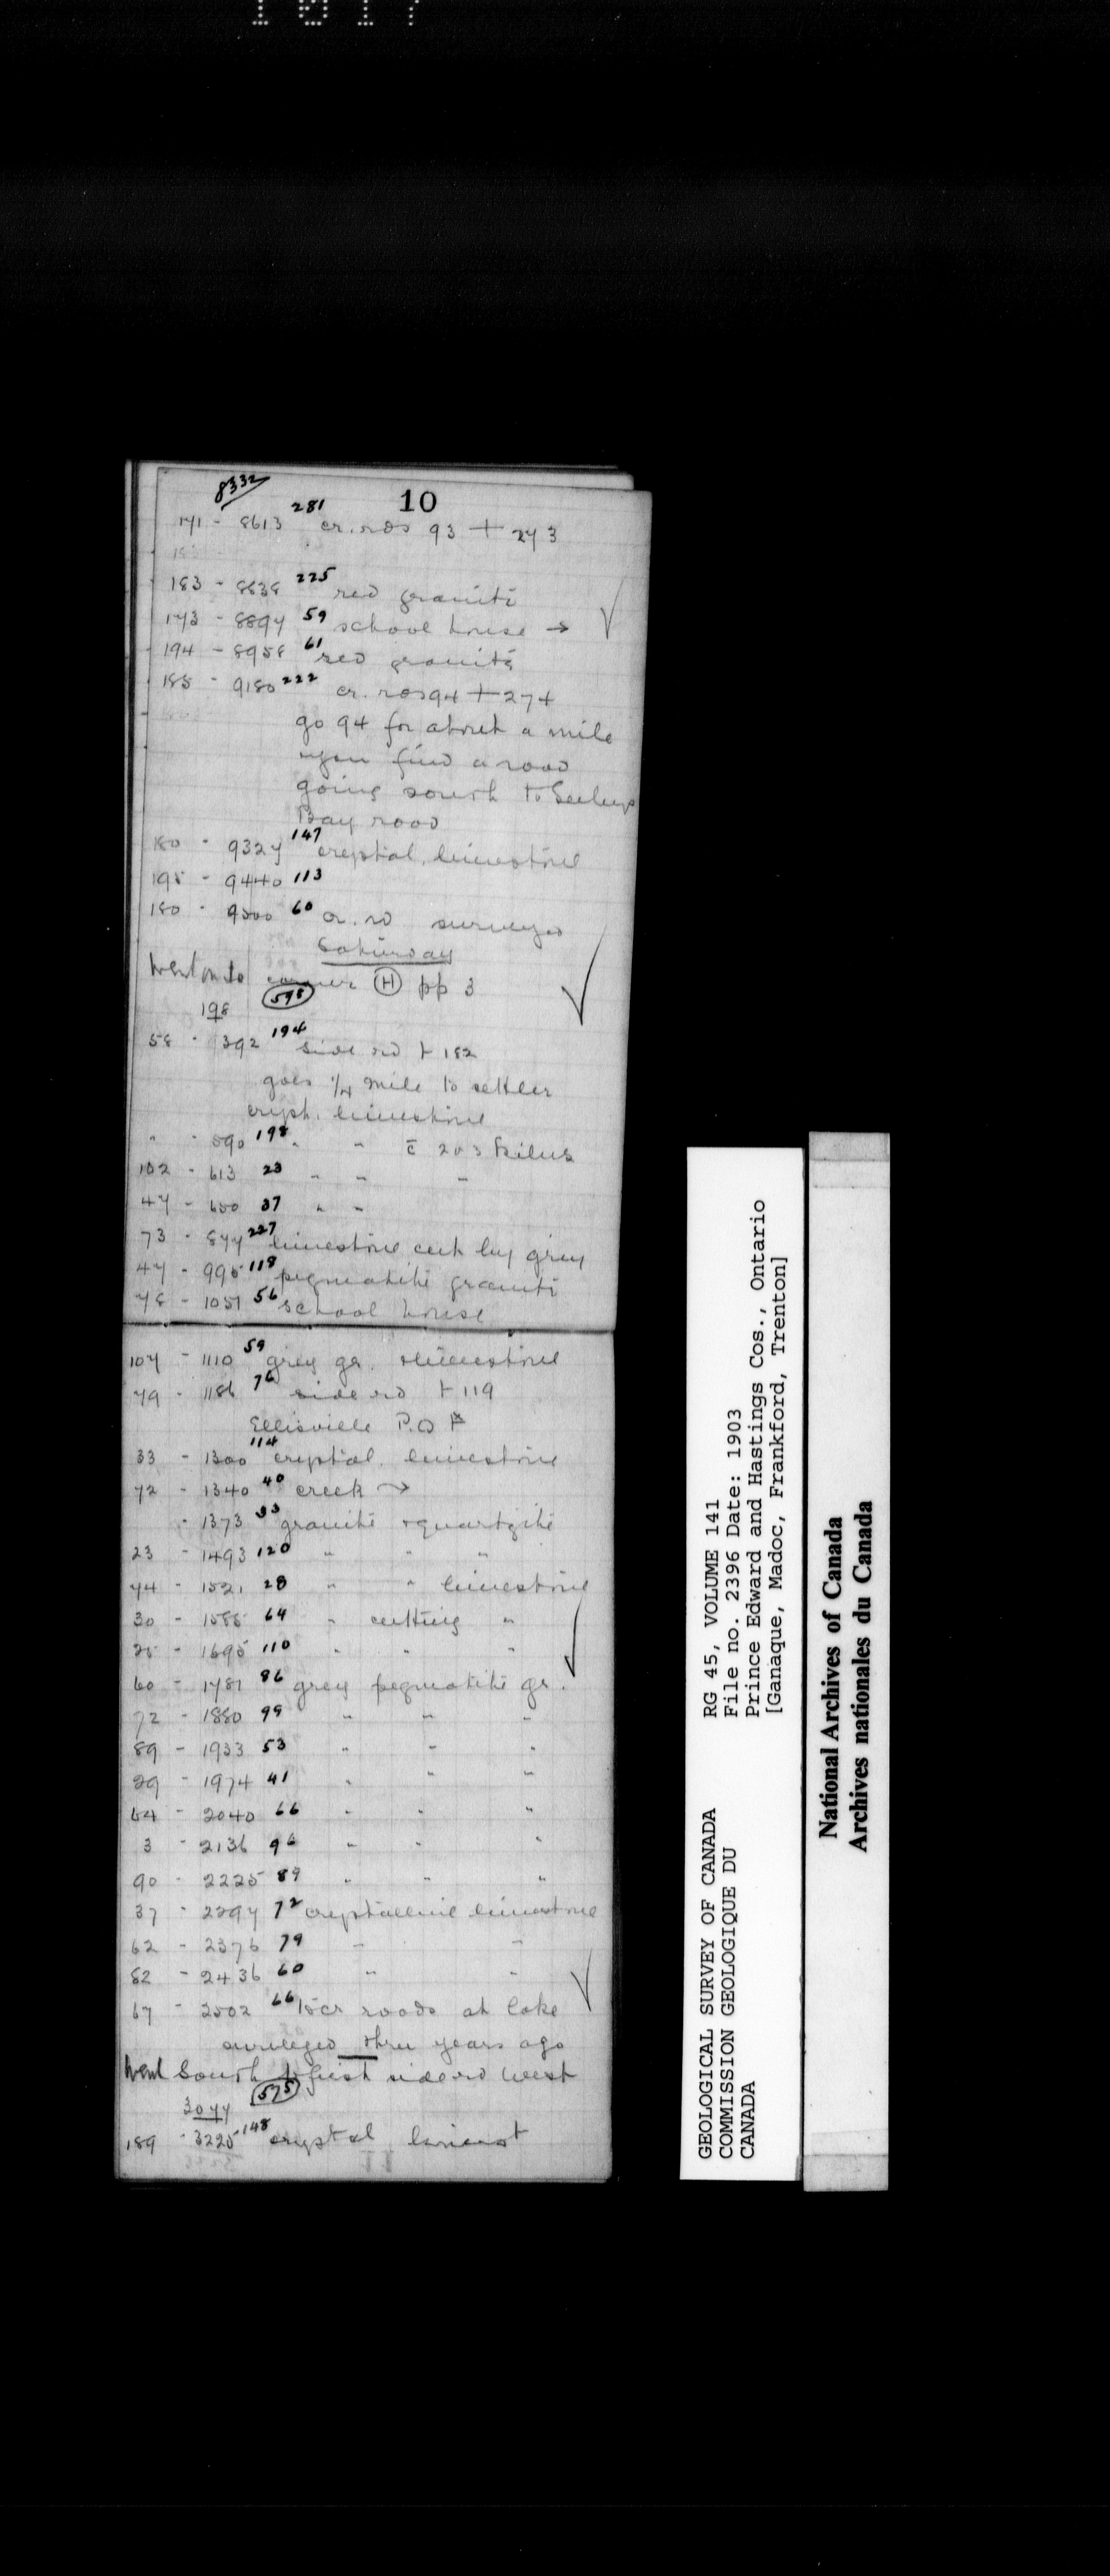 1017
10
8332
171 - 8613 281 cr. rds 93 + 273
183 - 8838 225 red granite
173 - 8897 59 school house →
194 - 8958 61 red granite
185 - 9180 222 cr. rds 94 + 274
go 94 for about a mile
then find a road
going south to Seeleys
Bay road
180 - 9327 147 crystal. limestone
195 - 9440 113
180 - 9500 60 cr. rd surveyed
Saturday
Went on to corner (H) pp 3
198 (598)
58 - 392 194 side rd + 182
goes 1/4 mile to settler
cryst. limestone
" - 590 198 " " c̄ 203 strikes
102 - 613 23 " " "
47 - 650 37 " "
73 - 877 227 limestone cut by grey
47 - 995 118 pegmatite granite
78 - 1051 56 school house
107 - 1110 59 grey gr. + limestone
79 - 1186 76 side rd + 119
Ellisville P.O
33 - 1300 114 crystal. limestone
72 - 1340 40 creek →
- 1373 33 granite + quartzite
23 - 1493 120 " " "
74 - 1521 28 " " limestone
30 - 1585 64 " cutting "
25 - 1695 110 " " "
60 - 1781 86 grey pegmatite gr.
72 - 1880 99 " " "
89 - 1933 53 " " "
29 - 1974 41 " " "
64 - 2040 66 " " "
3 - 2136 96 " " "
90 - 2225 89 " " "
37 - 2297 72 crystalline limestone
62 - 2376 79 " "
82 - 2436 60 " "
67 - 2502 66 to cr roads at lake
surveyed three years ago
Went South to first side rd west
3077 (575)
189 - 3225 148 crystal limest
GEOLOGICAL SURVEY OF CANADA
COMMISSION GEOLOGIQUE DU
CANADA
RG 45, VOLUME 141
File no. 2396 Date: 1903
Prince Edward and Hastings Cos., Ontario
[Ganaque, Madoc, Frankford, Trenton]
National Archives of Canada
Archives nationales du Canada